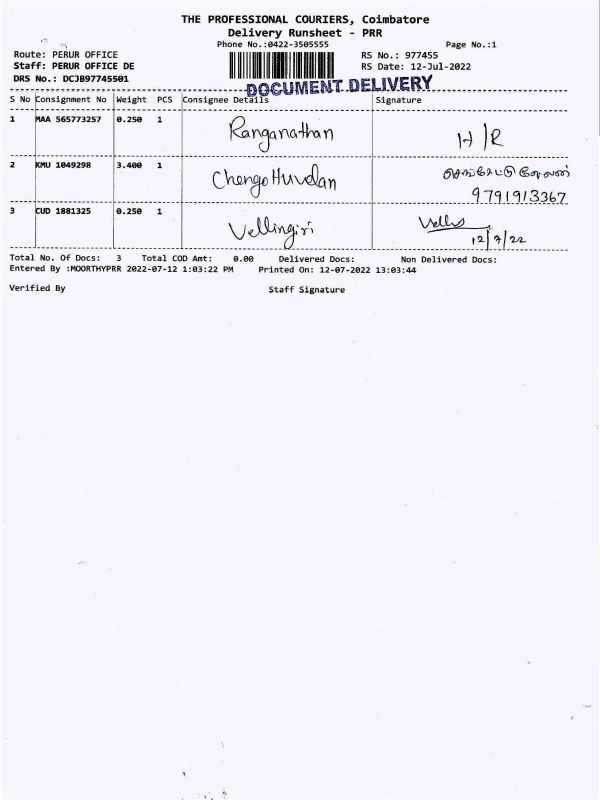 THE PROFESSIONAL COURIERS, Coimbatore
Delivery Runsheet - PRR
Phone No.:0422-3505555 Page No.:1
Route: PERUR OFFICE RS No.: 977455
Staff: PERUR OFFICE DE RS Date: 12-Jul-2022
DRS No.: DCJB97745501
DOCUMENT DELIVERY
S No Consignment No Weight PCS Consignee Details Signature
1 MAA 565773257 0.250 1 Ranganathan H/R
2 KMU 1049298 3.400 1 Chengottuvelan செங்கோட்டுவேலன்
9791913367
3 CUD 1881325 0.250 1 Vellingiri Vells
12/7/22
Total No. Of Docs: 3 Total COD Amt: 0.00 Delivered Docs: Non Delivered Docs:
Entered By :MOORTHYPRR 2022-07-12 1:03:22 PM Printed On: 12-07-2022 13:03:44
Verified By Staff Signature